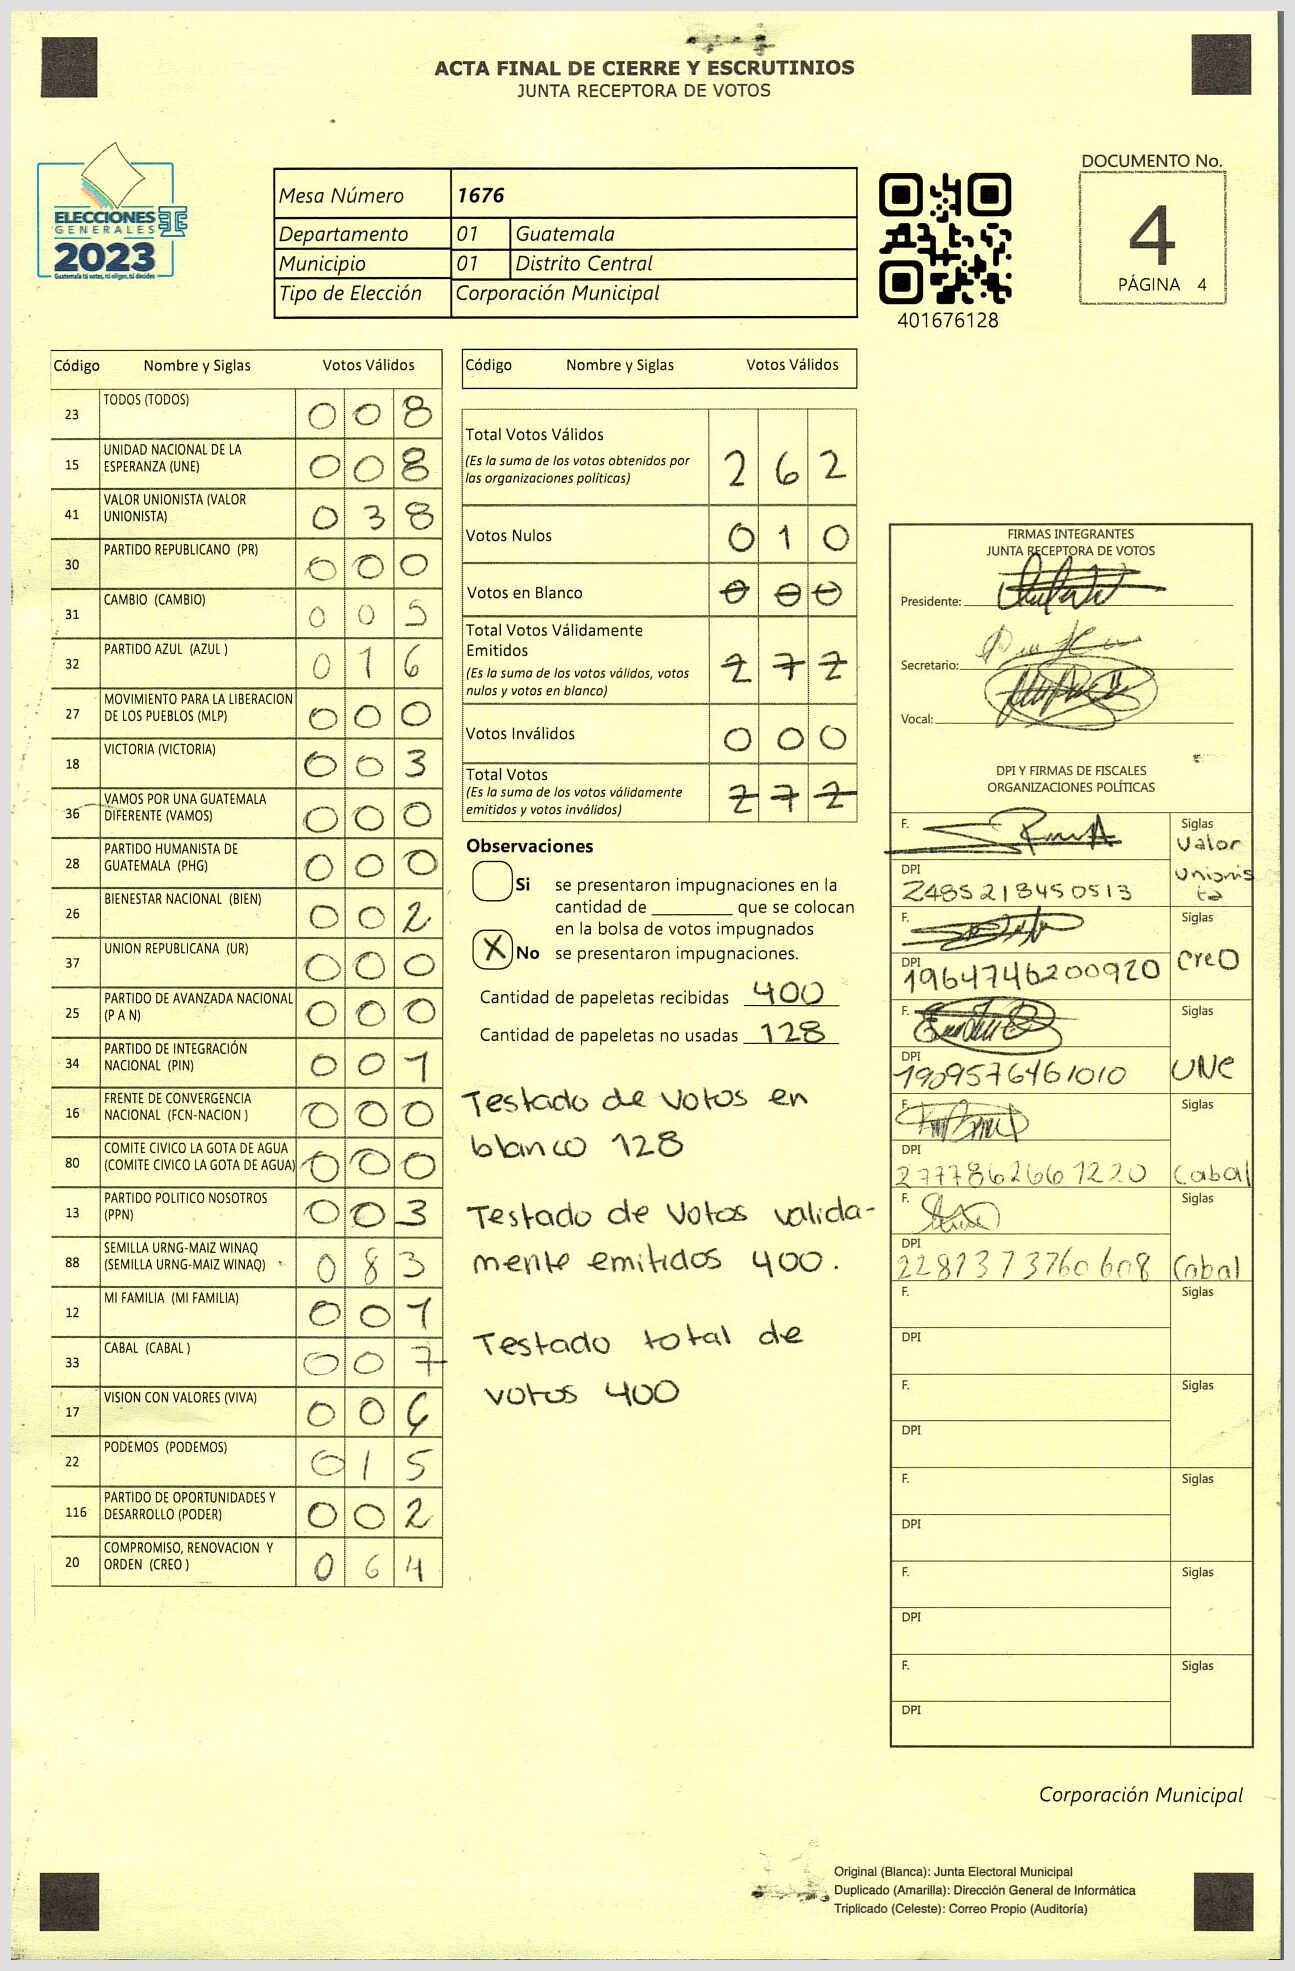 ACTA FINAL DE CIERRE Y ESCRUTINIOS
JUNTA RECEPTORA DE VOTOS
ELECCIONES
GENERALES
2023
Guatemala: tú votas, tú eliges, tú decides
Mesa Número 1676
Departamento 01 Guatemala
Municipio 01 Distrito Central
Tipo de Elección Corporación Municipal
401676128
DOCUMENTO No.
4
PÁGINA 4
Código Nombre y Siglas Votos Válidos
23 TODOS (TODOS) 0 0 8
15 UNIDAD NACIONAL DE LA ESPERANZA (UNE) 0 0 8
41 VALOR UNIONISTA (VALOR UNIONISTA) 0 3 8
30 PARTIDO REPUBLICANO (PR) 0 0 0
31 CAMBIO (CAMBIO) 0 0 5
32 PARTIDO AZUL (AZUL ) 0 1 6
27 MOVIMIENTO PARA LA LIBERACION DE LOS PUEBLOS (MLP) 0 0 0
18 VICTORIA (VICTORIA) 0 0 3
36 VAMOS POR UNA GUATEMALA DIFERENTE (VAMOS) 0 0 0
28 PARTIDO HUMANISTA DE GUATEMALA (PHG) 0 0 0
26 BIENESTAR NACIONAL (BIEN) 0 0 2
37 UNION REPUBLICANA (UR) 0 0 0
25 PARTIDO DE AVANZADA NACIONAL (P A N) 0 0 0
34 PARTIDO DE INTEGRACIÓN NACIONAL (PIN) 0 0 1
16 FRENTE DE CONVERGENCIA NACIONAL (FCN-NACION ) 0 0 0
80 COMITE CIVICO LA GOTA DE AGUA (COMITE CIVICO LA GOTA DE AGUA) 0 0 0
13 PARTIDO POLITICO NOSOTROS (PPN) 0 0 3
88 SEMILLA URNG-MAIZ WINAQ (SEMILLA URNG-MAIZ WINAQ) 0 8 3
12 MI FAMILIA (MI FAMILIA) 0 0 1
33 CABAL (CABAL ) 0 0 7
17 VISION CON VALORES (VIVA) 0 0 6
22 PODEMOS (PODEMOS) 0 1 5
116 PARTIDO DE OPORTUNIDADES Y DESARROLLO (PODER) 0 0 2
20 COMPROMISO, RENOVACION Y ORDEN (CREO ) 0 6 4
Código Nombre y Siglas Votos Válidos
Total Votos Válidos 2 6 2
(Es la suma de los votos obtenidos por
las organizaciones políticas)
Votos Nulos 0 1 0
Votos en Blanco 0 0 0
Total Votos Válidamente
Emitidos 2 7 2
(Es la suma de los votos válidos, votos
nulos y votos en blanco)
Votos Inválidos 0 0 0
Total Votos 2 7 2
(Es la suma de los votos válidamente
emitidos y votos inválidos)
Observaciones
Si se presentaron impugnaciones en la
cantidad de ________ que se colocan
en la bolsa de votos impugnados
X No se presentaron impugnaciones.
Cantidad de papeletas recibidas 400
Cantidad de papeletas no usadas 128
Testado de votos en
blanco 128
Testado de Votos valida-
mente emitidos 400.
Testado total de
votos 400
FIRMAS INTEGRANTES
JUNTA RECEPTORA DE VOTOS
Presidente:
Secretario:
Vocal:
DPI Y FIRMAS DE FISCALES
ORGANIZACIONES POLÍTICAS
F. Siglas Valor Unionista
DPI 2485218450513
F. Siglas CreO
DPI 1964746200920
F. Siglas UNE
DPI 1909576461010
F. Siglas Cabal
DPI 2777862661220
F. Siglas Cabal
DPI 2281373760608
F. Siglas
DPI
F. Siglas
DPI
F. Siglas
DPI
F. Siglas
DPI
F. Siglas
DPI
Corporación Municipal
Original (Blanca): Junta Electoral Municipal
Duplicado (Amarilla): Dirección General de Informática
Triplicado (Celeste): Correo Propio (Auditoría)